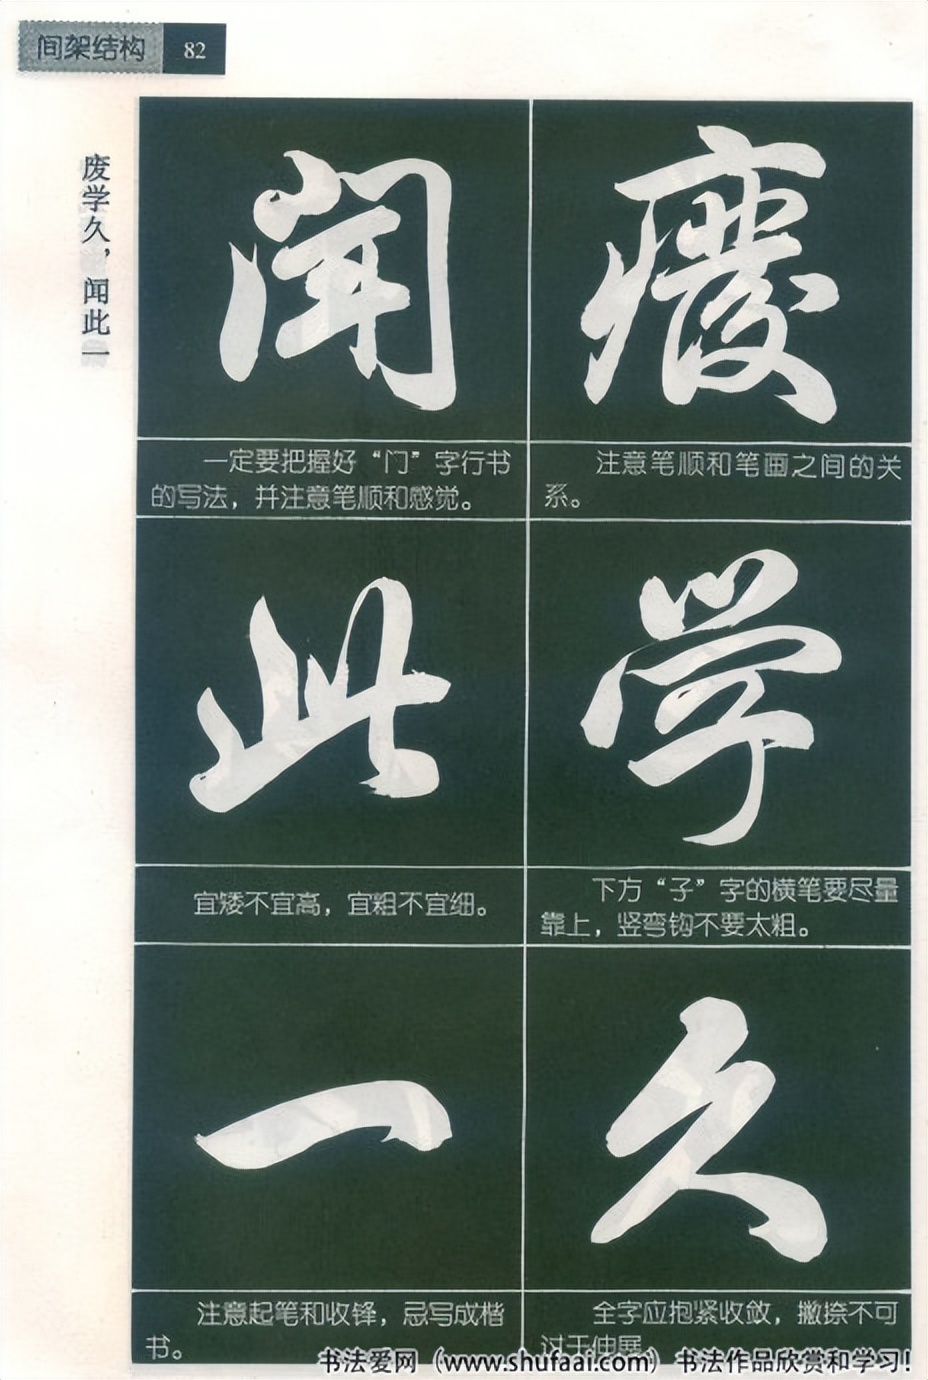 间架结构 82
废学久，闻此一
癈
注意笔顺和笔画之间的关
系。
學
下方“子”字的横笔要尽量
靠上，竖弯钩不要太粗。
久
全字应抱紧收敛，撇捺不可
过于伸展
聞
一定要把握好“门”字行书
的写法，并注意笔顺和感觉。
此
宜矮不宜高，宜粗不宜细。
一
注意起笔和收锋，忌写成楷
书。
书法爱网（www.shufaai.com）书法作品欣赏和学习！